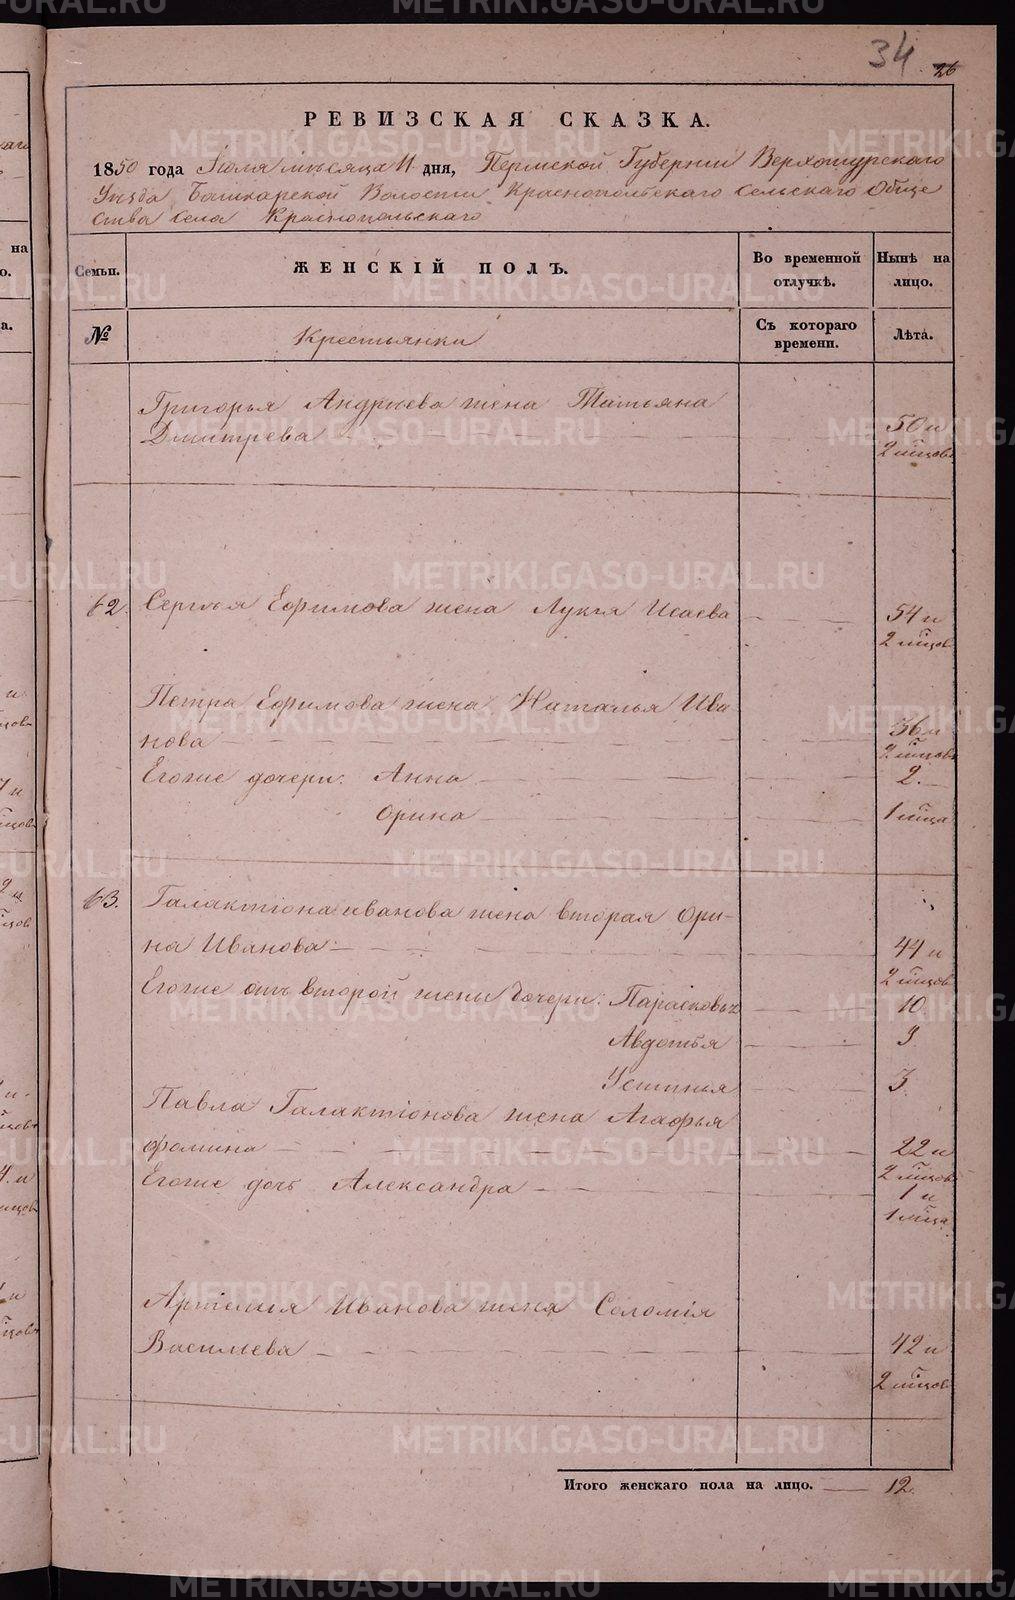 34 26
РЕВИЗСКАЯ СКАЗКА.
1850 года Іюля мѣсяца 11 дня, Пермской Губерніи Верхотурскаго
Уѣзда Башкарской Волости Краснопольскаго Сельскаго Обще
ства села Краснопольскаго
Семьи. ЖЕНСКІЙ ПОЛЪ. Во временной отлучкѣ. Нынѣ на лицо.
№ Крестьянки Съ котораго времени. Лѣта.
Григорья Андреева жена Татьяна
Дмитрева 50 и
2 мѣцов
62. Сергѣя Ефимова жена Лукія Исаева 54 и
2 мѣцов
Петра Ефимова жена Наталья Ива
нова 36 и
2 мѣцов
Егоже дочери: Анна 2.
Орина 1 мѣца
63. Галактіона Иванова жена вторая Ори-
на Иванова 44 и
2 мѣцов
Егоже отъ второй жены дочери: Парасковья 10
Авдотья 9
Устинья 3.
Павла Галактіонова жена Агафья
Фомина 22 и
2 мѣцов
Егоже дочь Александра 1 и
1 мѣца
Артемія Иванова жена Соломія
Васильева 42 и
2 мѣцов
Итого женскаго пола на лицо. 12.
METRIKI.GASO-URAL.RU